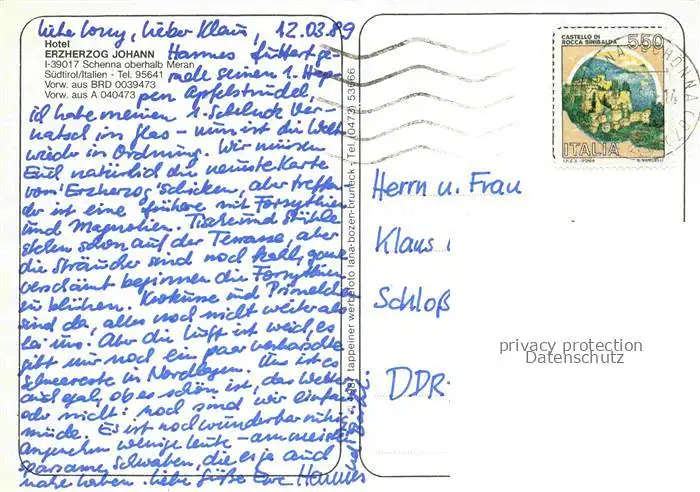 liebe Lony, lieber Klaus, 12.03.89
Hotel
ERZHERZOG JOHANN
I-39017 Schenna oberhalb Meran
Südtirol/Italien - Tel. 95641
Vorw. aus BRD 0039473
Vorw. aus A 040473
Hannes futtert ge-
rade seinen 1. Hap-
pen Apfelstrudel,
ich habe meinen 1. Schluck Ver-
natsch im Glas - nun ist die Welt
wieder in Ordnung. Wir müssen
Euch natürlich die neueste Karte
vom Erzherzog schicken, aber treffen-
der ist eine frühere mit Forsythien
und Magnolien. Tische und Stühle
stehen schon auf der Terrasse, aber
die Sträucher sind noch kahl, ganz
verschämt beginnen die Forsythien
zu blühen. Krokusse und Primelchen
sind da, alles noch nicht weiter als
bei uns. Aber die Luft ist weich, es
gibt nur noch ein paar verharschte
Schneereste in Nordlagen. Uns ist es
auch egal, ob es schön ist, das Wetter,
oder nicht: noch sind wir einfach
müde. Es ist noch wunderbar ruhig,
angenehm wenige Leute - am meisten
sparsame Schwaben, die es ja auch
nahe haben. Liebe Grüße Eure Hannes
tappeiner werbefoto lana-bozen-bruneck - Tel. (0473) 53666
CASTELLO DI
ROCCA SINIBALDA
550
ITALIA
Herrn u. Frau
Klaus
Schloß
DDR-
privacy protection
Datenschutz